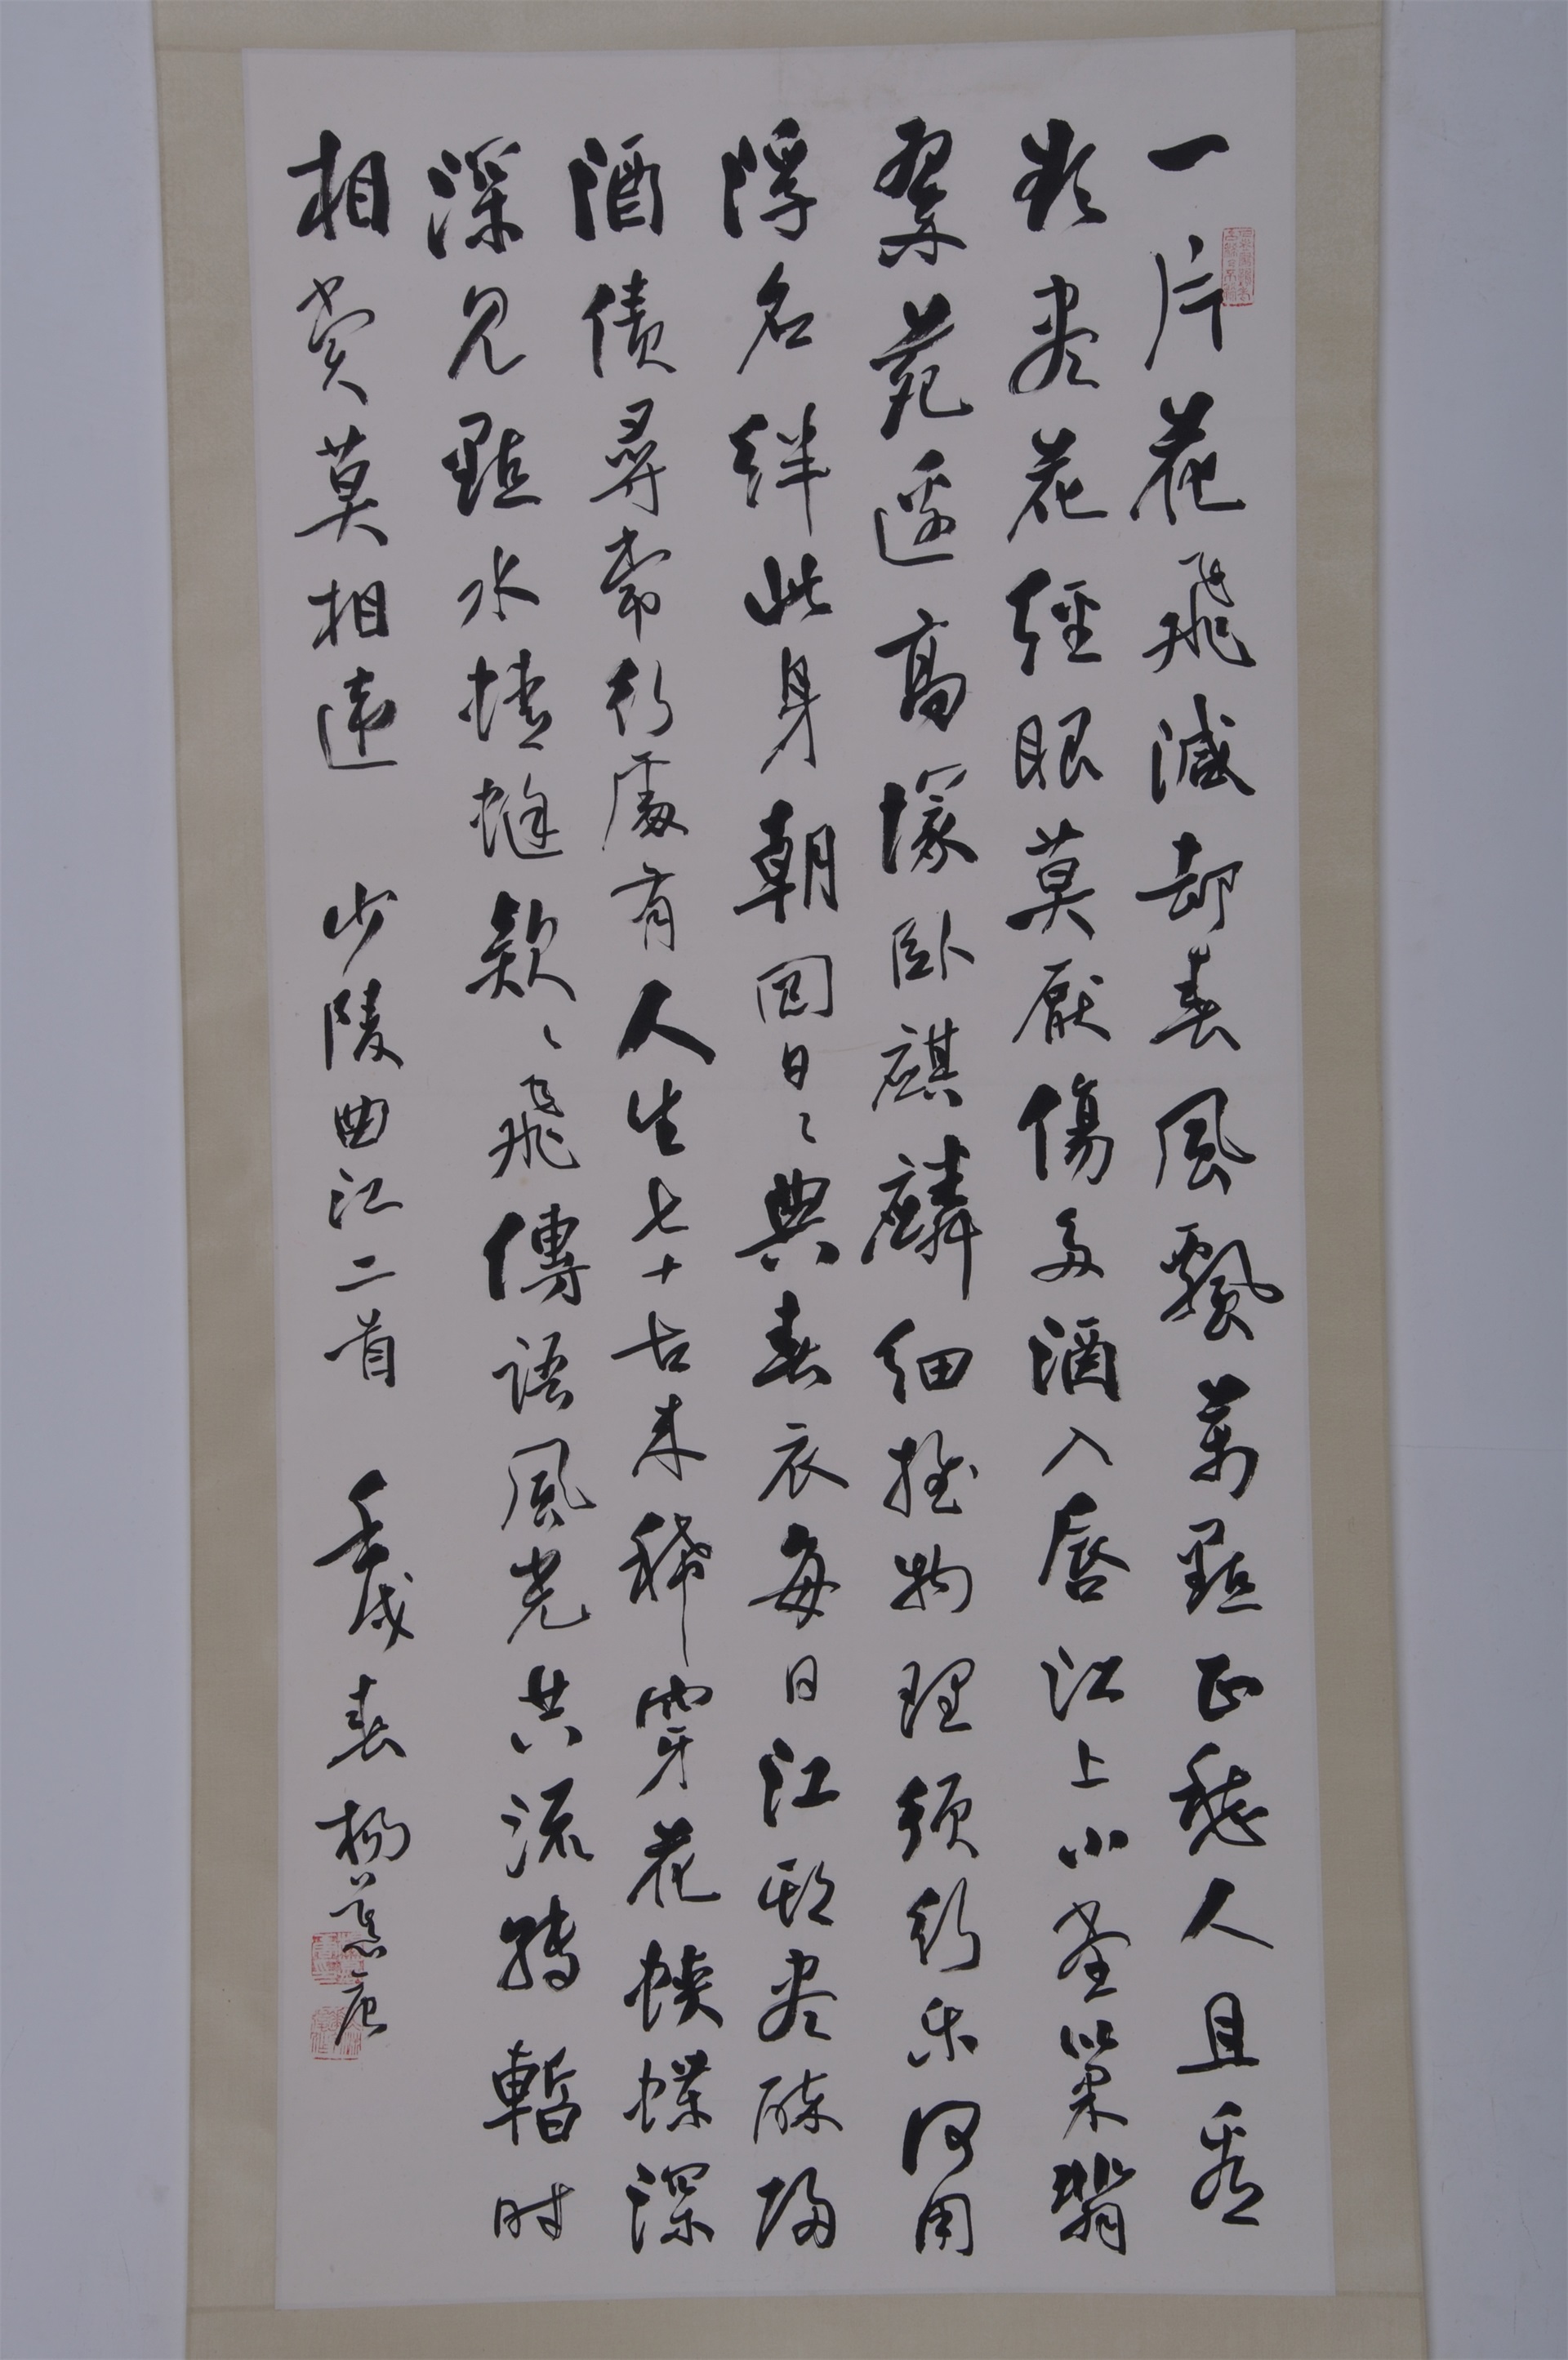 一片花飛減却春風飄萬點正愁人且看
欲盡花經眼莫厭傷多酒入唇江上小堂巢翡
翠苑邊高塚卧麒麟細推物理須行樂何用
浮名絆此身朝回日〻典春衣每日江頭盡醉歸
酒債尋常行處有人生七十古来稀穿花蛺蝶深
深見點水蜻蜓款〻飛傳語風光共流轉暫时
相賞莫相違 少陵曲江二首 壬戌春楊蕙